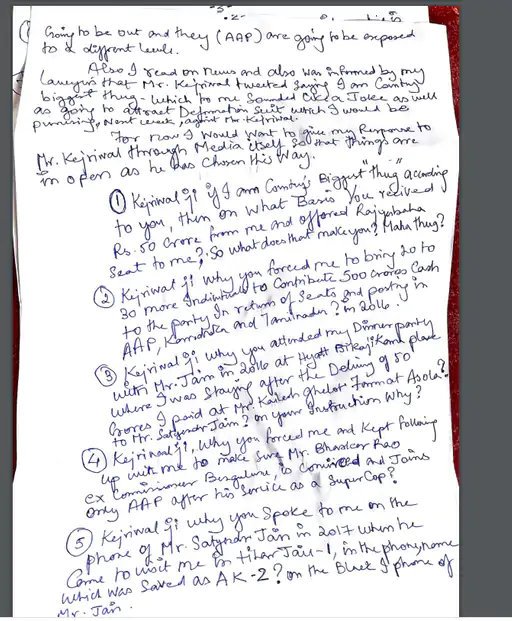 -2-
Going to be out and they (AAP) are going to be exposed
to a different levels.
Also I read on News and also was informed by my
Lawyers that Mr. Kejriwal tweeted saying I am Country's
biggest thug - which to me Sounded like a Joke as well
as going to attract Defamation Suit which I would be
pursuing, Next week, against Mr. Kejriwal.
For now I would want to give my Response to
Mr. Kejriwal through Media itself so that things are
in open as he has Chosen this way.
① Kejriwal ji if I am Country's Biggest "thug" according
to you, then on what Basis You recived
Rs. 50 Crore from me and offered Rajyasbaha
Seat to me? So what does that make you? Maha thug?
② Kejriwal ji Why you forced me to bring 20 to
30 more Individuals to Contribute 500 crores Cash
to the party In return of Seats and posting in
AAP, Karnataka and Tamilnadu? in 2016.
③ Kejriwal ji Why you attended my Dinner party
with Mr. Jain in 2016 at Hyatt Bikaji Kama place
where I was Staying after the Delivery of 50
Crores I paid at Mr. Kailash Ghelot Farm at Asola?
to Mr. Satyendar Jain? on your instruction Why?
④ Kejriwal ji, Why you forced me and Kept following
up with me to make sure Mr. Bhaskar Rao
ex Commissioner Bangalure, is Convinced and Joins
only AAP after his service as a SuperCop?
⑤ Kejriwal ji why you Spoke to me on the
phone of Mr. Satyndar Jain in 2017 when he
Came to visit me in tihar Jail-1, in the phone, name
which was Saved as AK-2? on the Black I phone of
Mr. Jain.